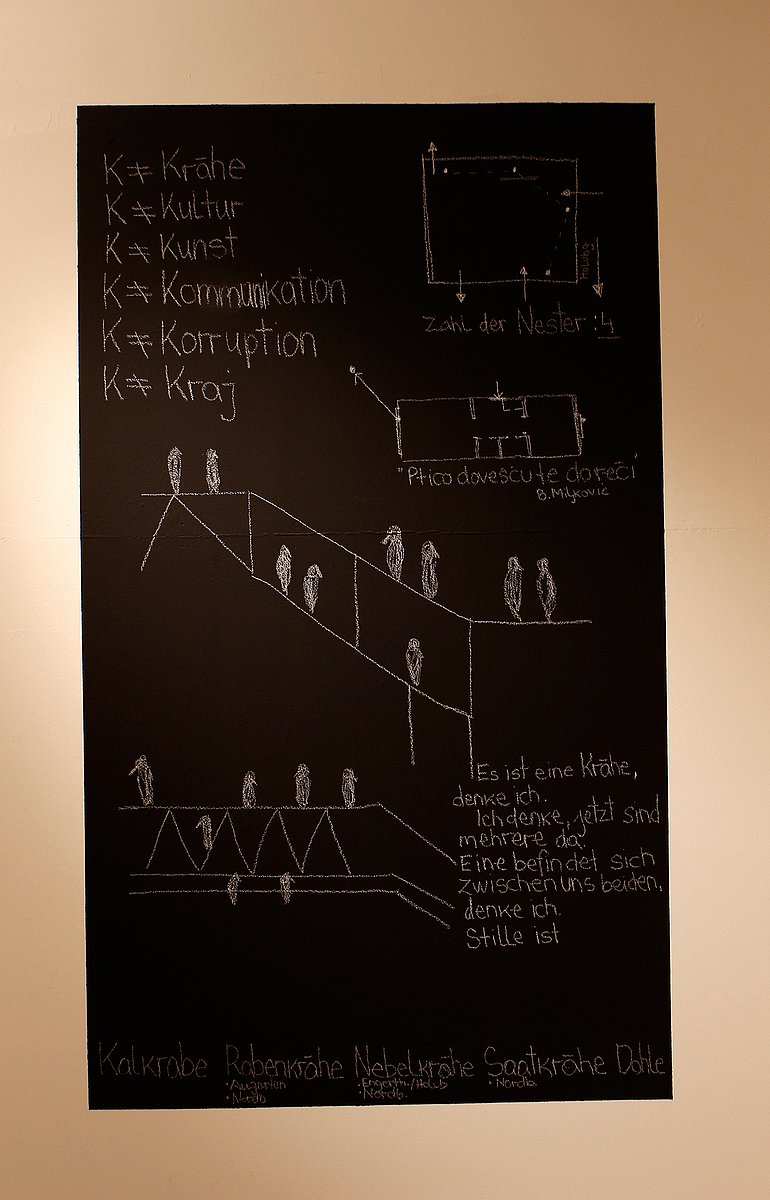 K ≠ Krähe
K ≠ Kultur
K ≠ Kunst
K ≠ Kommunikation
K ≠ Korruption
K ≠ Kraj
Zahl der Nester : 4
"Ptico dovešću te do reči
B. Miljković
Es ist eine Krähe,
denke ich.
Ich denke, jetzt sind
mehrere da.
Eine befindet sich
zwischen uns beiden,
denke ich.
Stille ist
Kolkrabe Rabenkrähe Nebelkrähe Saatkrähe Dohle
• Augarten • Engerth./Holub • Nordb
• Nordb • Nordb.